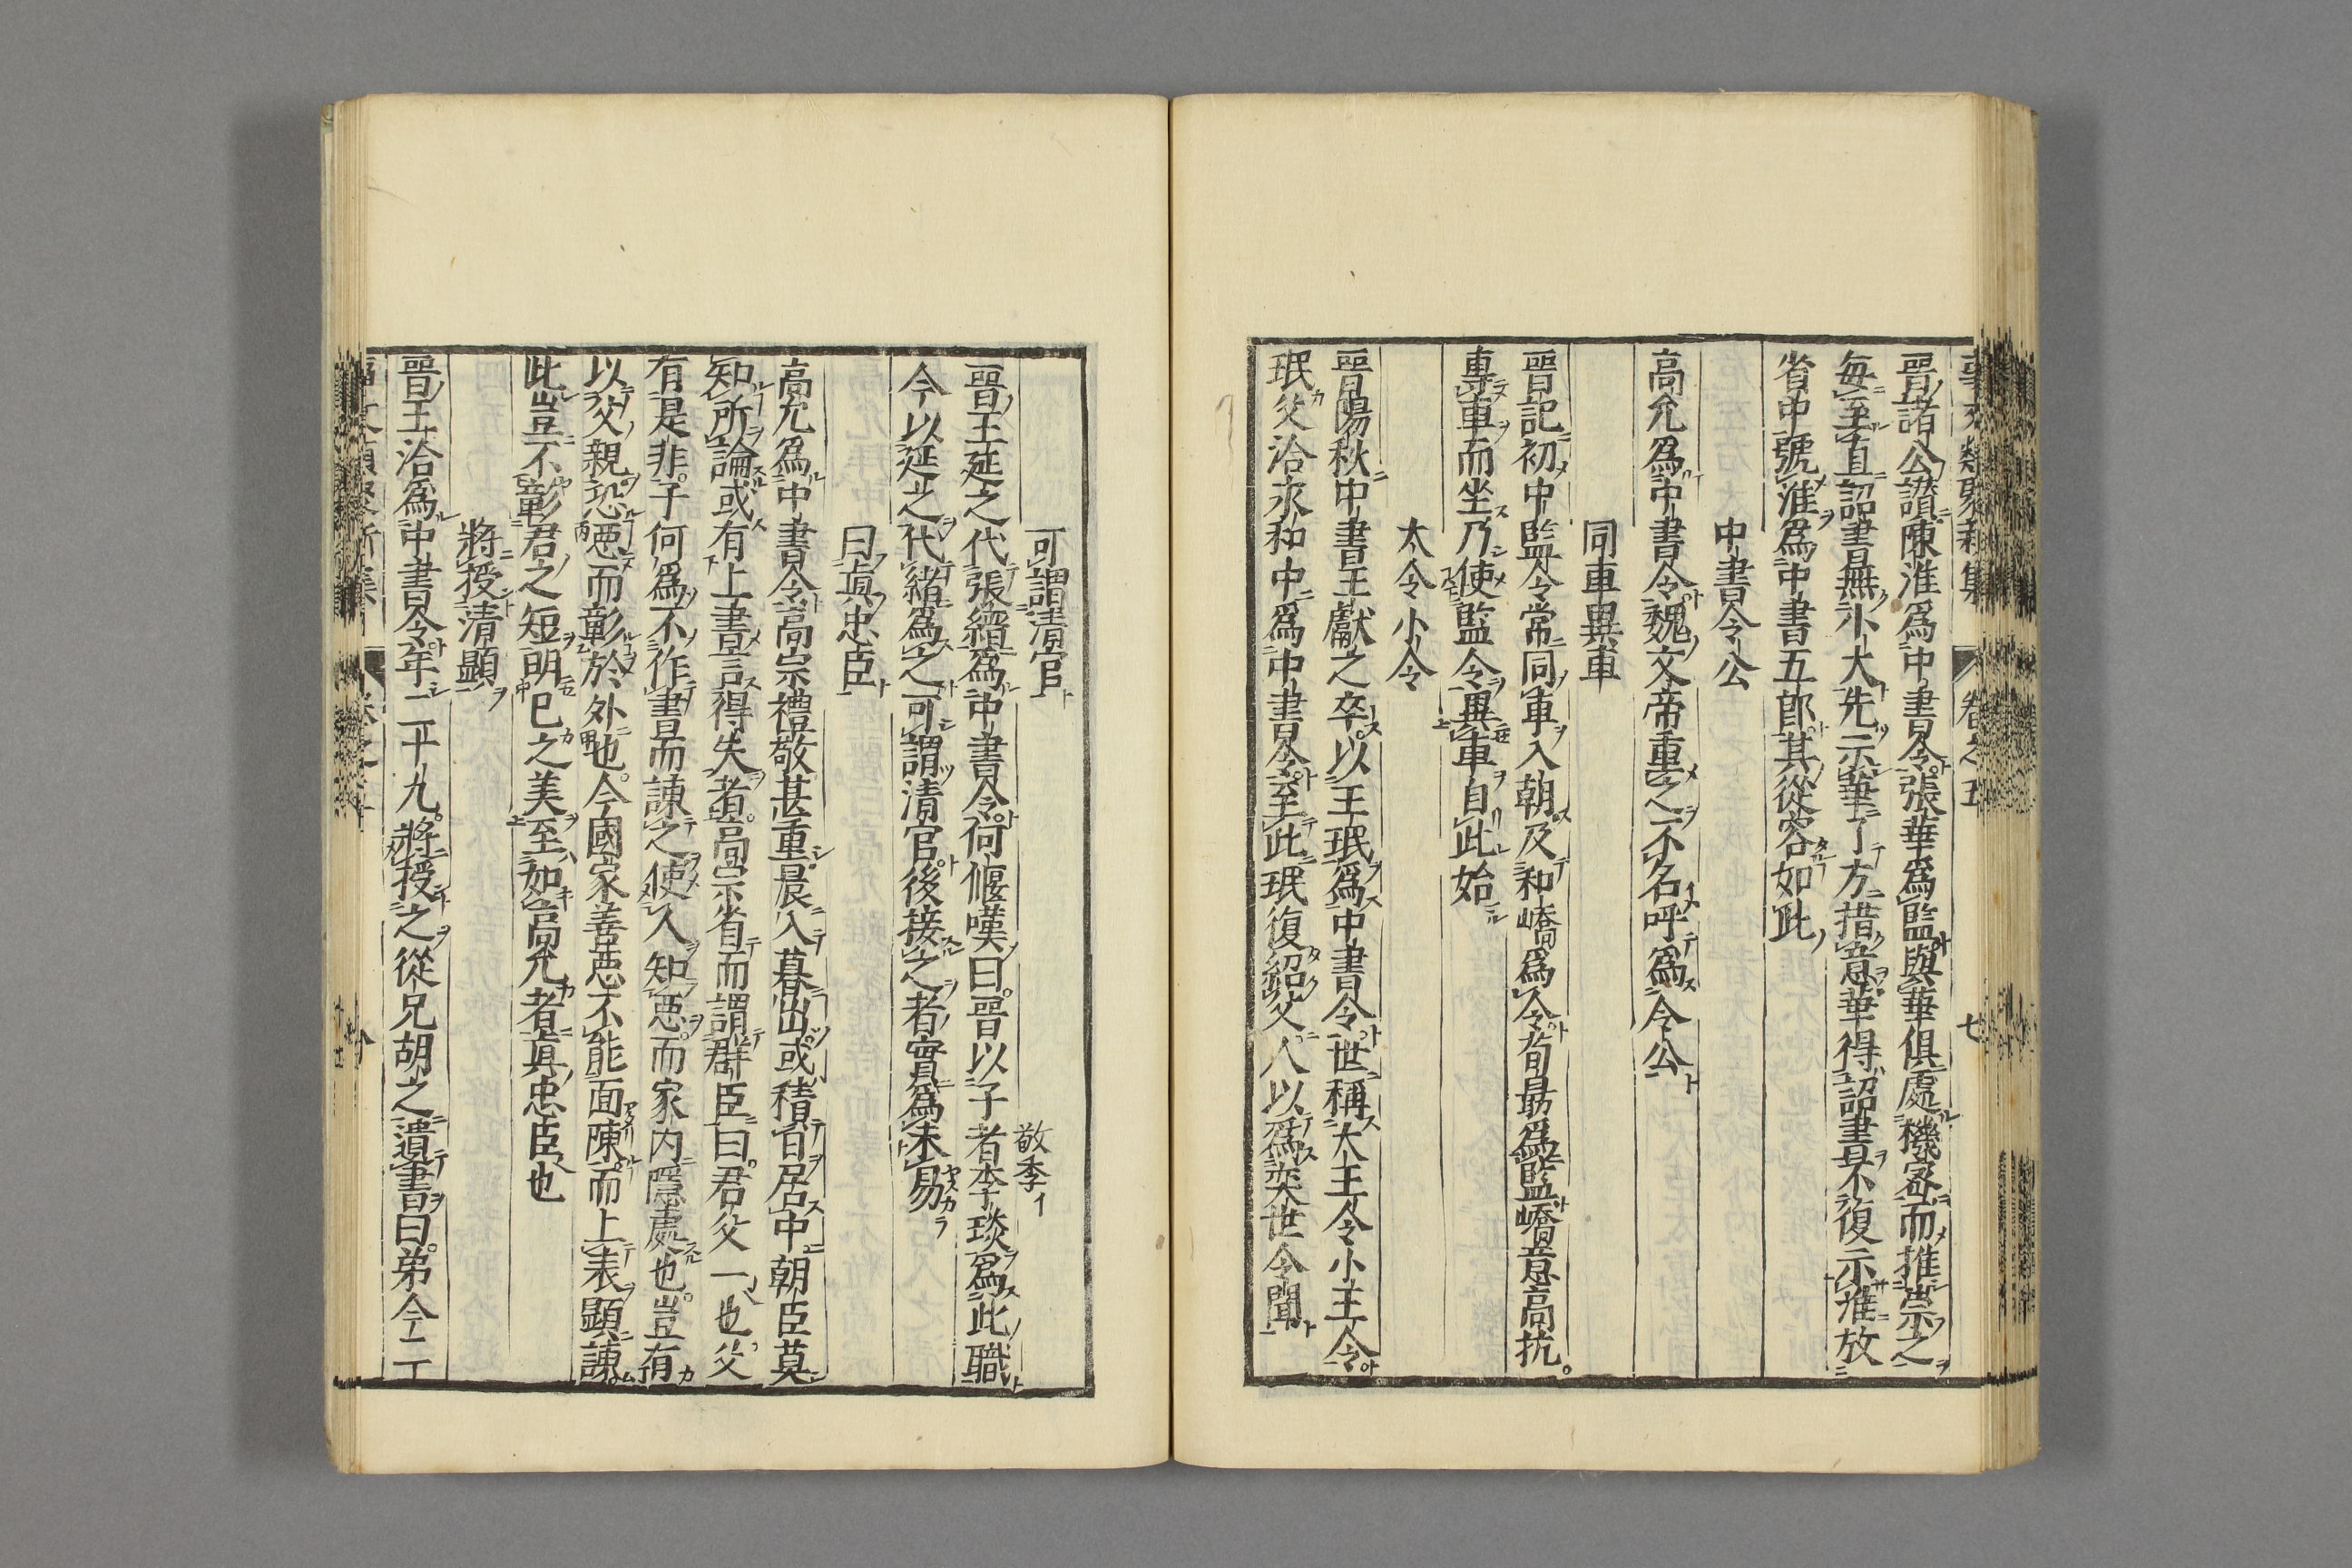 晋諸公讃陳淮爲中書令張華爲監與華俱處機密而推崇之
毎至直詔書無小大先示華了方措意華得詔書不復示淮放
省中號淮爲中書五郎其從容如此
中書令公
高允爲中書令魏文帝重之不名呼爲令公
同車異車
晋記初中監令常同車入朝及和嶠爲令荀勗爲監嶠意高抗
專車而坐乃使監令異車自此始
太令小令
晋陽秋中書王獻之卒以王珉爲中書令世稱大王令小王令
珉父洽永和中爲中書令至此珉復紹父人以爲奕世令聞
可謂清官
敬季イ
晋王延之代張緒爲中書令何偃嘆曰晋以子者李琰爲此職
今以延之代緒爲之可謂清官後接之者實爲未易
曰眞忠臣
高允爲中書令高宗禮敬甚重晨入暮出或積日居中朝臣莫
知所論或有上書言得失者高宗省而謂群臣曰君父一也父
有是非子何爲不作書而諌之使人知惡而家内隱處也豈有
以父親恐惡而彰於外也今國家善惡不能面陳而上表顯諌
此豈不彰君之短明已之美至如高允者眞忠臣也
將授清顯
晋王洽爲中書令年二十九將授之從兄胡之遺書曰弟今二丁